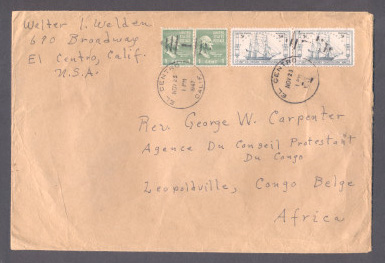 Walter I. Welden
690 Broadway
El Centro, Calif.
U.S.A.
EL CENTRO
NOV 23
1 PM
1947
CALIF.
EL CENTRO
NOV 23
1 PM
Rev. George W. Carpenter
Agence Du Conseil Protestant
Du Congo
Leopoldville, Congo Belge
Africa